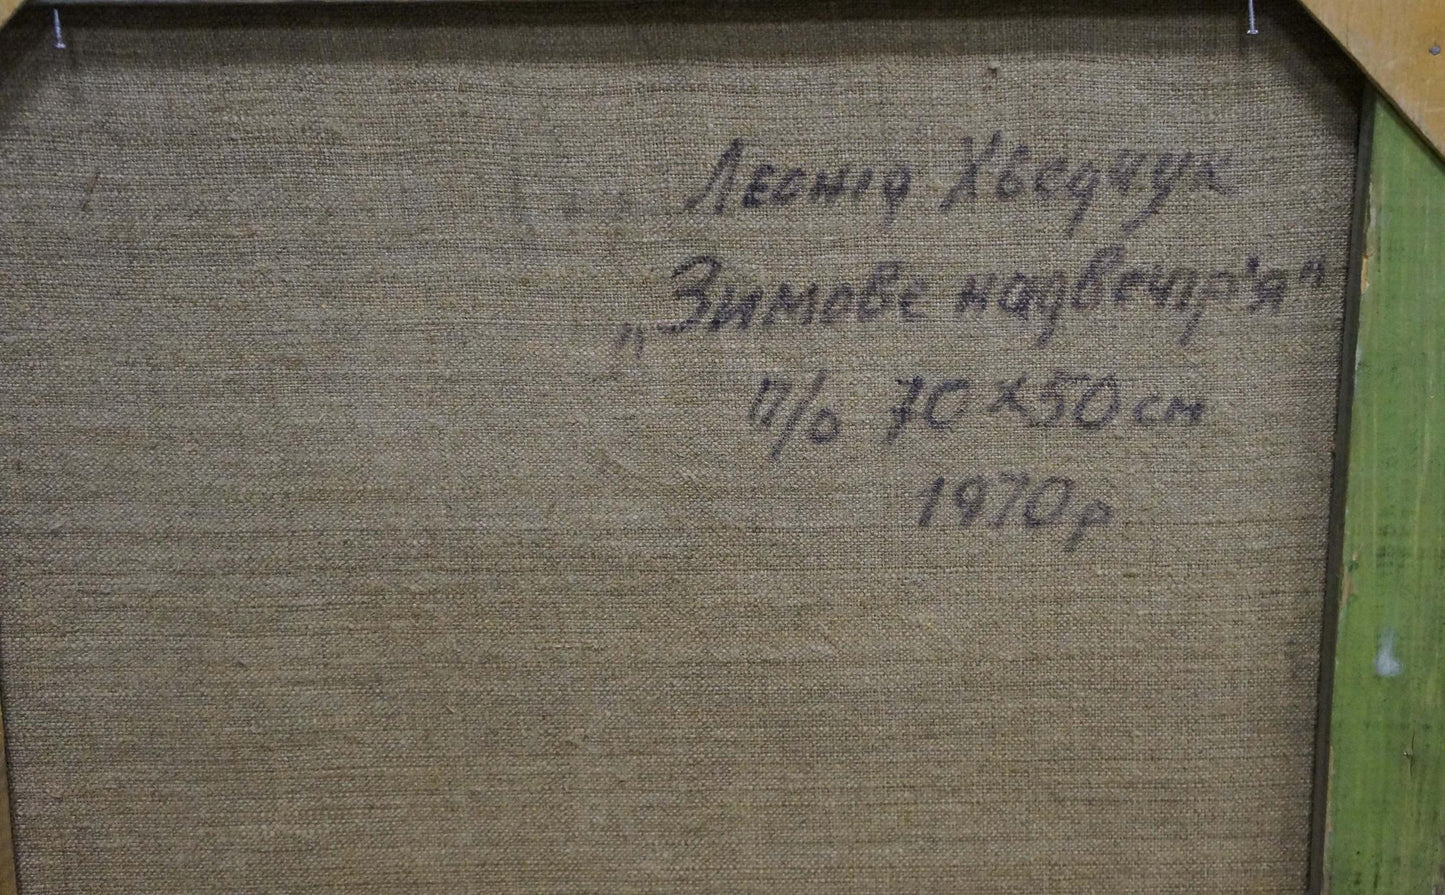 Леонід Хведчук
„Зимове надвечір'я"
п/о 70х50см
1970р